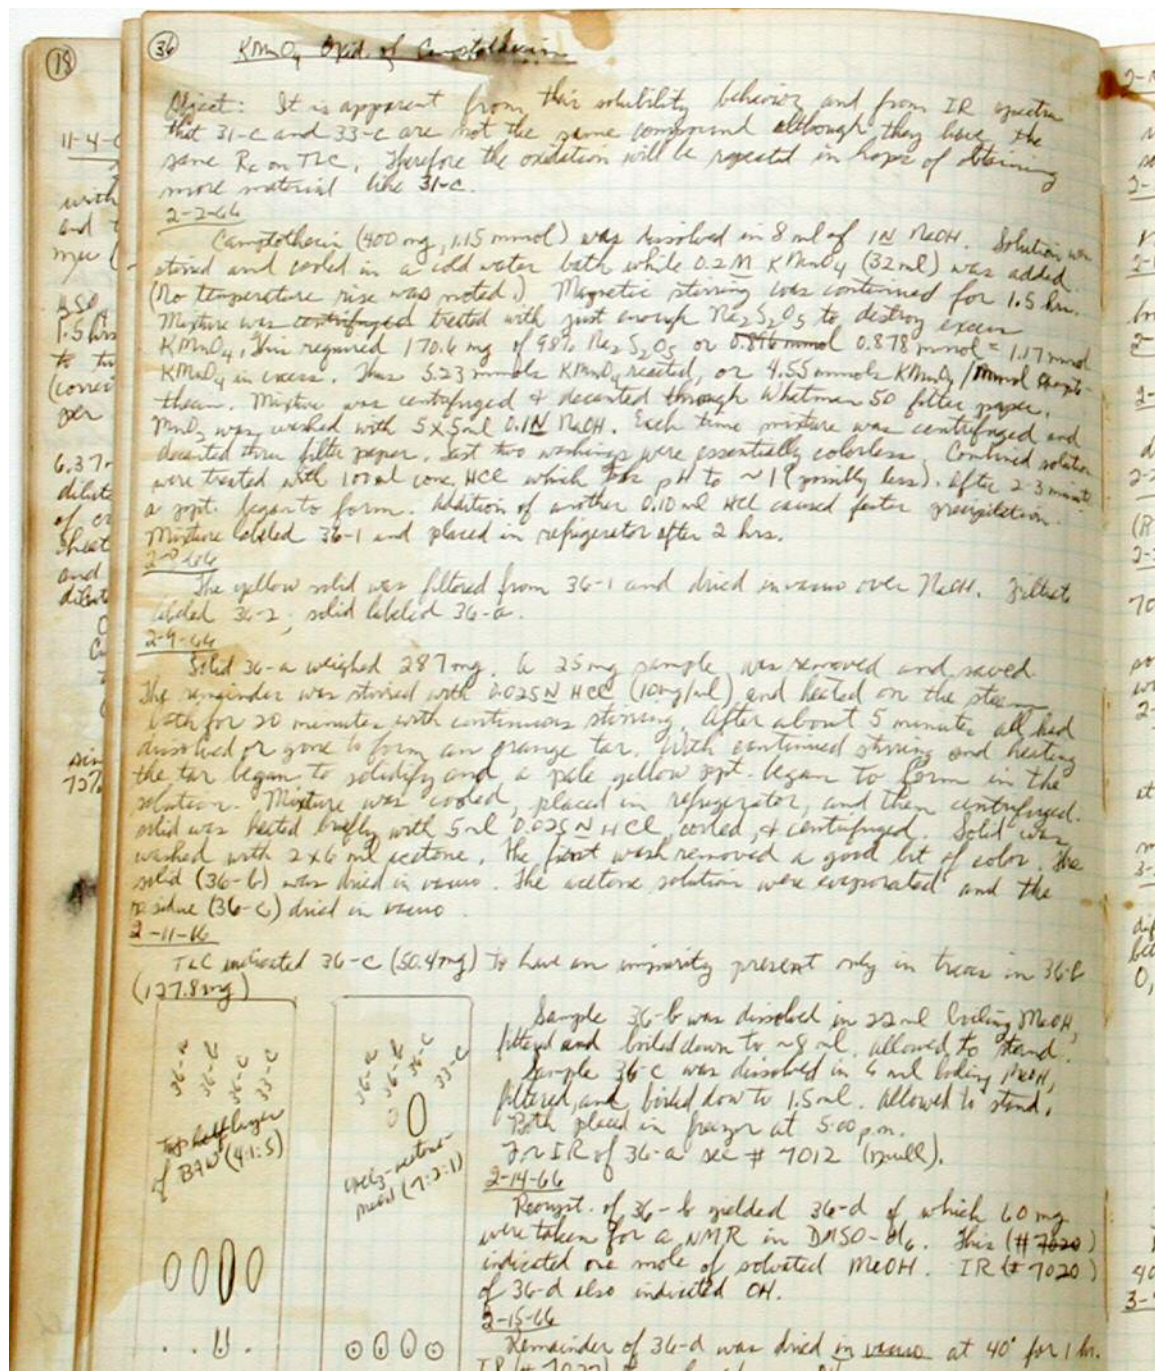 18
36
KMnO4 Oxid. of Camptothecin
Object: It is apparent from their solubility behavior and from IR spectra
that 31-c and 33-c are not the same compound although they have the
same Rf on TLC. Therefore the oxidation will be repeated in hopes of obtaining
more material like 31-c.
2-2-66
Camptothecin (400 mg, 1.15 mmol) was dissolved in 8 ml of 1N NaOH. Solution was
stirred and cooled in a cold water bath while 0.2M KMnO4 (32 ml) was added.
(No temperature rise was noted.) Magnetic stirring was continued for 1.5 hrs.
Mixture was centrifuged treated with just enough Na2S2O5 to destroy excess
KMnO4. This required 170.6 mg of 98% Na2S2O5 or 0.896 mmol 0.878 mmol = 1.17 mmol
KMnO4 in excess. Thus 5.23 mmols KMnO4 reacted, or 4.55 mmols KMnO4/mmol Campto-
thecin. Mixture was centrifuged & decanted through Whatman 50 filter paper.
MnO2 was washed with 5x5ml 0.1N NaOH. Each time mixture was centrifuged and
decanted thru filter paper. Last two washings were essentially colorless. Combined solutions
were treated with conc. HCl which pH to ~1 (possibly less). After 2-3 minutes
a ppt. began to form. Addition of another 0.10 ml HCl caused faster precipitation.
Mixture labeled 36-1 and placed in refrigerator after 2 hrs.
The yellow solid was filtered from 36-1 and dried in vacuo over NaOH. Filtrate
labeled 36-2; solid labeled 36-a.
2-9-66
Solid 36-a weighed 287 mg. A 25 mg sample was removed and saved
The remainder was stirred with 0.025N HCl (10mg/ml) and heated on the steam
bath for 20 minutes with continuous stirring. After about 5 minutes all had
dissolved or gone to form an orange tar. With continued stirring and heating
the tar began to solidify and a pale yellow ppt. began to form in the
solution. Mixture was cooled, placed in refrigerator, and then centrifuged.
solid was heated briefly with 5 ml 0.025 N HCl, cooled, & centrifuged. Solid was
washed with 2x6 ml acetone. The first wash removed a good bit of color. The
solid (36-b) was dried in vacuo. The acetone solution were evaporated and the
residue (36-c) dried in vacuo.
2-11-66
TLC indicated 36-c (50.4mg) to have an impurity present only in traces in 36-b
(127.8mg)
36-a
36-b
36-c
33-c
top half layer
of BAW (4:1:5)
36-a
36-b
36-c
33-c
CHCl3-acetone-
MeOH (7:2:1)
Sample 36-b was dissolved in 22 ml boiling MeOH,
filtered and boiled down to ~8 ml. allowed to stand.
Sample 36-c was dissolved in 6 ml boiling MeOH,
filtered, and boiled down to 1.5 ml. Allowed to stand.
Both placed in freezer at 5:00 p.m.
For IR of 36-a see # 7012 (mull).
2-14-66
Recryst. of 36-b yielded 36-d of which 60 mg
were taken for a NMR in DMSO-d6. This (# 7020)
indicated one mole of solvated MeOH. IR (# 7020)
of 36-d also indicated OH.
2-15-66
Remainder of 36-d was dried in vacuo at 40° for 1 hr.